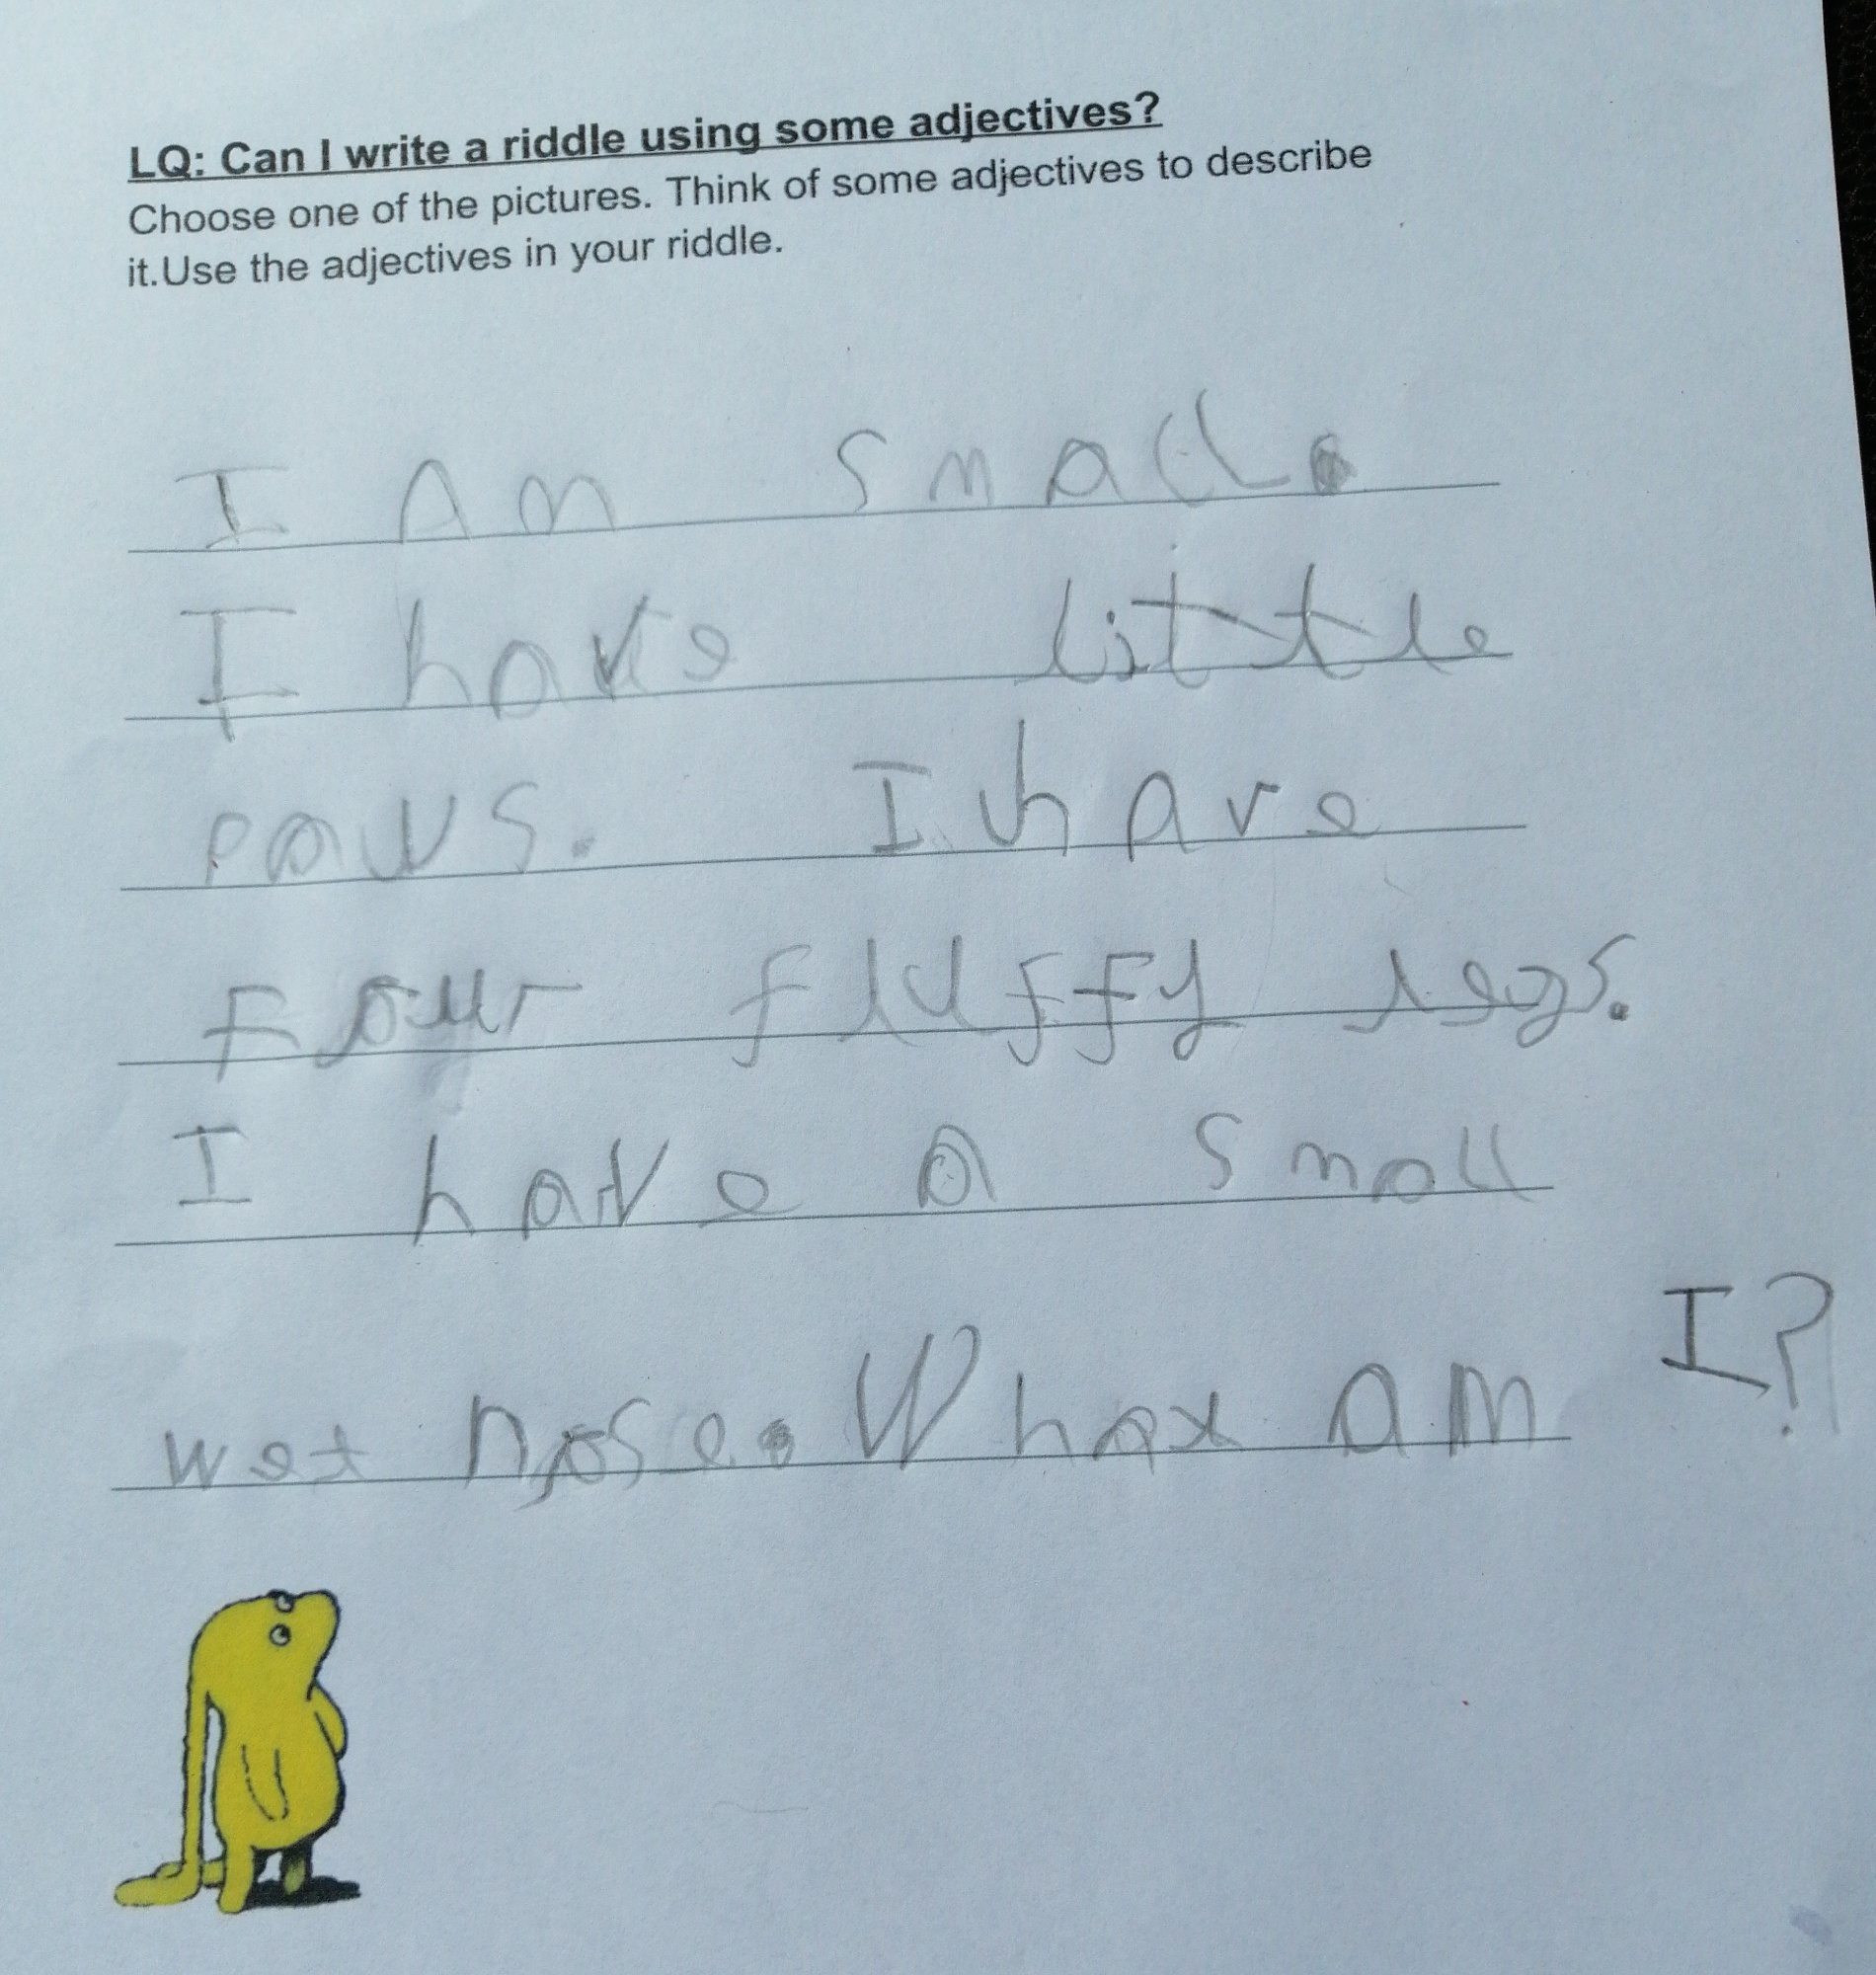 LQ: Can I write a riddle using some adjectives?
Choose one of the pictures. Think of some adjectives to describe
it.Use the adjectives in your riddle.
I am small.
I have little
paws. I have
four fluffy legs.
I have a small
wet nose. What am I?